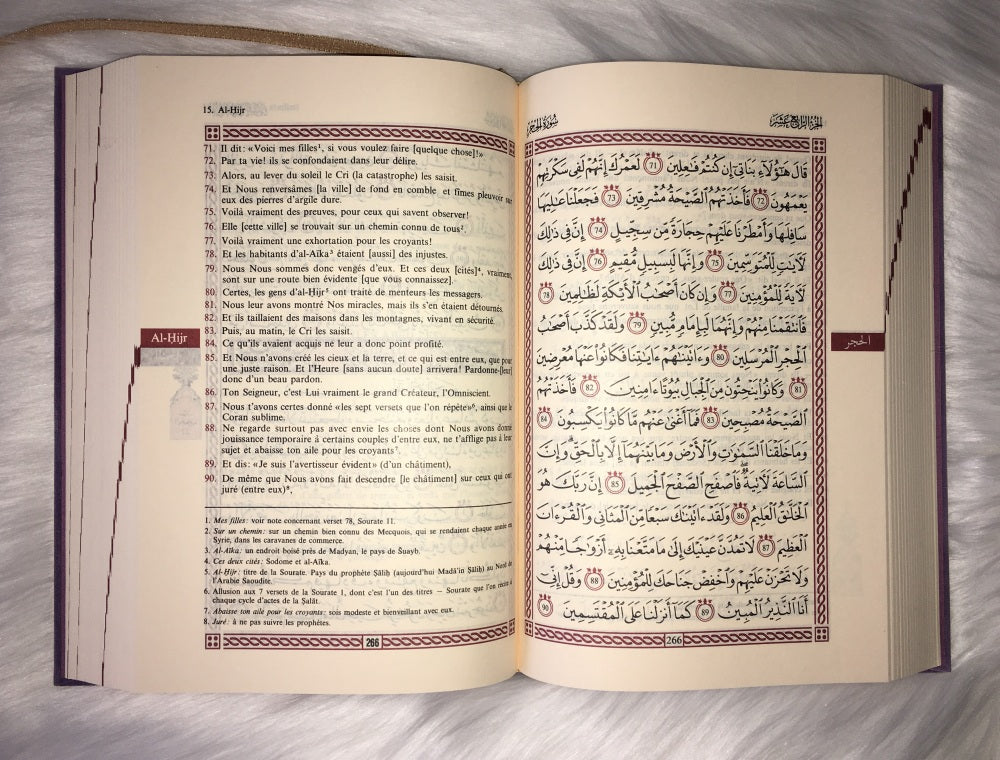 15. Al-Hijr
71. Il dit: «Voici mes filles¹, si vous voulez faire [quelque chose]!»
72. Par ta vie! ils se confondaient dans leur délire.
73. Alors, au lever du soleil le Cri (la catastrophe) les saisit.
74. Et Nous renversâmes [la ville] de fond en comble et fîmes pleuvoir sur
eux des pierres d'argile dure.
75. Voilà vraiment des preuves, pour ceux qui savent observer!
76. Elle [cette ville] se trouvait sur un chemin connu de tous².
77. Voilà vraiment une exhortation pour les croyants!
78. Et les habitants d'al-Aïka³ étaient [aussi] des injustes.
79. Nous Nous sommes donc vengés d'eux. Et ces deux [cités]⁴, vraiment,
sont sur une route bien évidente [que vous connaissez].
80. Certes, les gens d'al-Ḥijr⁵ ont traité de menteurs les messagers.
81. Nous leur avons montré Nos miracles, mais ils s'en étaient détournés.
82. Et ils taillaient des maisons dans les montagnes, vivant en sécurité.
83. Puis, au matin, le Cri les saisit.
84. Ce qu'ils avaient acquis ne leur a donc point profité.
85. Et Nous n'avons créé les cieux et la terre, et ce qui est entre eux, que pour
une juste raison. Et l'Heure [sans aucun doute] arrivera! Pardonne-[leur]
donc d'un beau pardon.
86. Ton Seigneur, c'est Lui vraiment le grand Créateur, l'Omniscient.
87. Nous t'avons certes donné «les sept versets que l'on répète»⁶, ainsi que le
Coran sublime.
88. Ne regarde surtout pas avec envie les choses dont Nous avons donné
jouissance temporaire à certains couples d'entre eux, ne t'afflige pas à leur
sujet et abaisse ton aile pour les croyants⁷.
89. Et dis: «Je suis l'avertisseur évident» (d'un châtiment),
90. De même que Nous avons fait descendre [le châtiment] sur ceux qui ont
juré (entre eux)⁸,
1. Mes filles: voir note concernant verset 78, Sourate 11.
2. Sur un chemin: sur un chemin bien connu des Mecquois, qui se rendaient chaque année en
Syrie, dans les caravanes de commerce.
3. Al-Aïka: un endroit boisé près de Madyan, le pays de Šuayb.
4. Ces deux cités: Sodome et al-Aïka.
5. Al-Ḥijr: titre de la Sourate. Pays du prophète Ṣâliḥ (aujourd'hui Madâ'in Ṣâliḥ) au Nord de
l'Arabie Saoudite.
6. Allusion aux 7 versets de la Sourate 1, dont c'est l'un des titres — Sourate que l'on récite à
chaque cycle d'actes de la Ṣalât.
7. Abaisse ton aile pour les croyants: sois modeste et bienveillant avec eux.
8. Juré: à ne pas suivre les prophètes.
266
Al-Ḥijr
الجزء الرابع عشر
سورة الحجر
قَالَ هَٰٓؤُلَآءِ بَنَاتِىٓ إِن كُنتُمْ فَٰعِلِينَ ٧١ لَعَمْرُكَ إِنَّهُمْ لَفِى سَكْرَتِهِمْ
يَعْمَهُونَ ٧٢ فَأَخَذَتْهُمُ ٱلصَّيْحَةُ مُشْرِقِينَ ٧٣ فَجَعَلْنَا عَٰلِيَهَا
سَافِلَهَا وَأَمْطَرْنَا عَلَيْهِمْ حِجَارَةً مِّن سِجِّيلٍ ٧٤ إِنَّ فِى ذَٰلِكَ
لَءَايَٰتٍ لِّلْمُتَوَسِّمِينَ ٧٥ وَإِنَّهَا لَبِسَبِيلٍ مُّقِيمٍ ٧٦ إِنَّ فِى ذَٰلِكَ
لَءَايَةً لِّلْمُؤْمِنِينَ ٧٧ وَإِن كَانَ أَصْحَٰبُ ٱلْأَيْكَةِ لَظَٰلِمِينَ ٧٨
فَٱنتَقَمْنَا مِنْهُمْ وَإِنَّهُمَا لَبِإِمَامٍ مُّبِينٍ ٧٩ وَلَقَدْ كَذَّبَ أَصْحَٰبُ
ٱلْحِجْرِ ٱلْمُرْسَلِينَ ٨٠ وَءَاتَيْنَٰهُمْ ءَايَٰتِنَا فَكَانُوا۟ عَنْهَا مُعْرِضِينَ
٨١ وَكَانُوا۟ يَنْحِتُونَ مِنَ ٱلْجِبَالِ بُيُوتًا ءَامِنِينَ ٨٢ فَأَخَذَتْهُمُ
ٱلصَّيْحَةُ مُصْبِحِينَ ٨٣ فَمَآ أَغْنَىٰ عَنْهُم مَّا كَانُوا۟ يَكْسِبُونَ ٨٤
وَمَا خَلَقْنَا ٱلسَّمَٰوَٰتِ وَٱلْأَرْضَ وَمَا بَيْنَهُمَآ إِلَّا بِٱلْحَقِّ وَإِنَّ
ٱلسَّاعَةَ لَءَاتِيَةٌ فَٱصْفَحِ ٱلصَّفْحَ ٱلْجَمِيلَ ٨٥ إِنَّ رَبَّكَ هُوَ
ٱلْخَلَّٰقُ ٱلْعَلِيمُ ٨٦ وَلَقَدْ ءَاتَيْنَٰكَ سَبْعًا مِّنَ ٱلْمَثَانِى وَٱلْقُرْءَانَ
ٱلْعَظِيمَ ٨٧ لَا تَمُدَّنَّ عَيْنَيْكَ إِلَىٰ مَا مَتَّعْنَا بِهِۦٓ أَزْوَٰجًا مِّنْهُمْ
وَلَا تَحْزَنْ عَلَيْهِمْ وَٱخْفِضْ جَنَاحَكَ لِلْمُؤْمِنِينَ ٨٨ وَقُلْ إِنِّىٓ
أَنَا ٱلنَّذِيرُ ٱلْمُبِينُ ٨٩ كَمَآ أَنزَلْنَا عَلَى ٱلْمُقْتَسِمِينَ ٩٠
266
الحجر